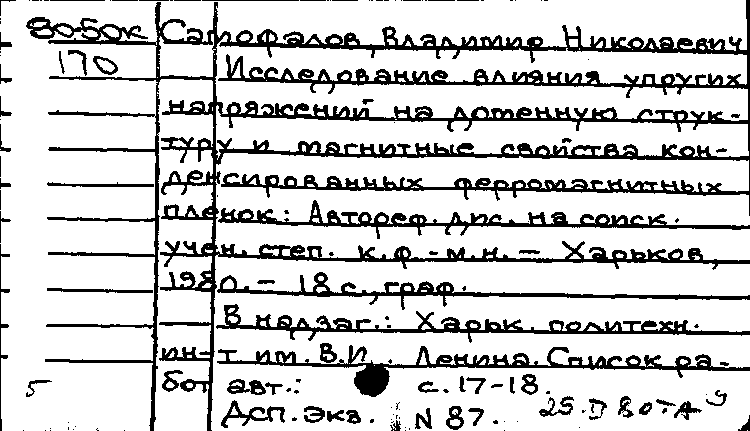 80-50к Самофалов, Владимир Николаевич
170 Исследование влияния упругих
напряжений на доменную струк-
туру и магнитные свойства кон-
денсированных ферромагнитных
пленок: Автореф. дис. на соиск.
учен. степ. к.ф.-м.н. — Харьков,
1980. — 18 с., граф.
В надзаг.: Харьк. политехн.
ин-т им. В.И. Ленина. Список ра-
бот авт.: с. 17-18.
5 Дсп. Экз. N 87.